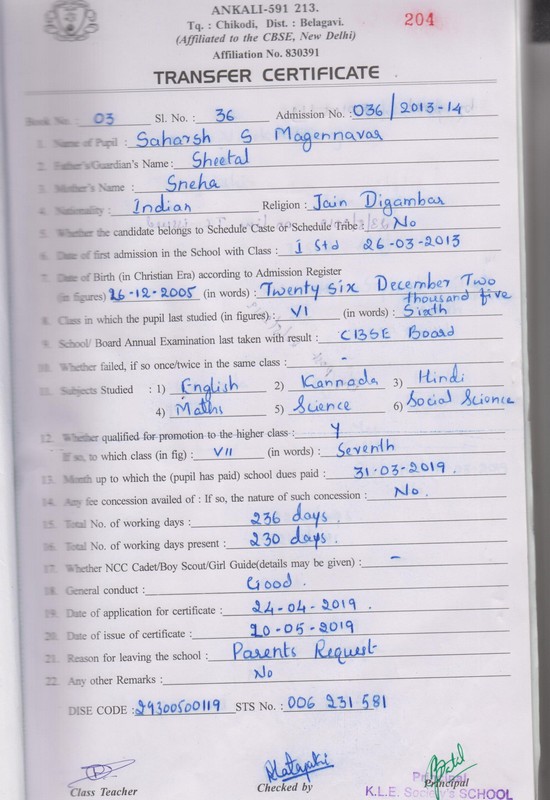 ANKALI-591 213.
Tq. : Chikodi, Dist. : Belagavi.
204
(Affiliated to the CBSE, New Delhi)
Affiliation No. 830391
TRANSFER CERTIFICATE
Book No. : 03 Sl. No. : 36 Admission No. : 036/2013-14
1. Name of Pupil : Saharsh S Magennavar
2. Father's/Guardian's Name : Sheetal
3. Mother's Name : Sneha
4. Nationality : Indian Religion : Jain Digambar
5. Whether the candidate belongs to Schedule Caste or Schedule Tribe : No
6. Date of first admission in the School with Class : I Std 26-03-2013
7. Date of Birth (in Christian Era) according to Admission Register
(in figures) 26-12-2005 (in words) : Twenty six December Two
thousand five
8. Class in which the pupil last studied (in figures) : VI (in words) : Sixth
9. School/ Board Annual Examination last taken with result : CBSE Board
10. Whether failed, if so once/twice in the same class : -
11. Subjects Studied : 1) English 2) Kannada 3) Hindi
4) Maths 5) Science 6) Social Science
12. Whether qualified for promotion to the higher class : Y
If so, to which class (in fig) : VII (in words) : Seventh
13. Month up to which the (pupil has paid) school dues paid : 31-03-2019.
14. Any fee concession availed of : If so, the nature of such concession : No.
15. Total No. of working days : 236 days.
16. Total No. of working days present : 230 days.
17. Whether NCC Cadet/Boy Scout/Girl Guide(details may be given) : -
18. General conduct : Good.
19. Date of application for certificate : 24-04-2019.
20. Date of issue of certificate : 20-05-2019
21. Reason for leaving the school : Parents Request
22. Any other Remarks : No
DISE CODE : 29300500119 STS No. : 006 231 581
Class Teacher Checked by Principal
Principal
K.L.E. Society's SCHOOL